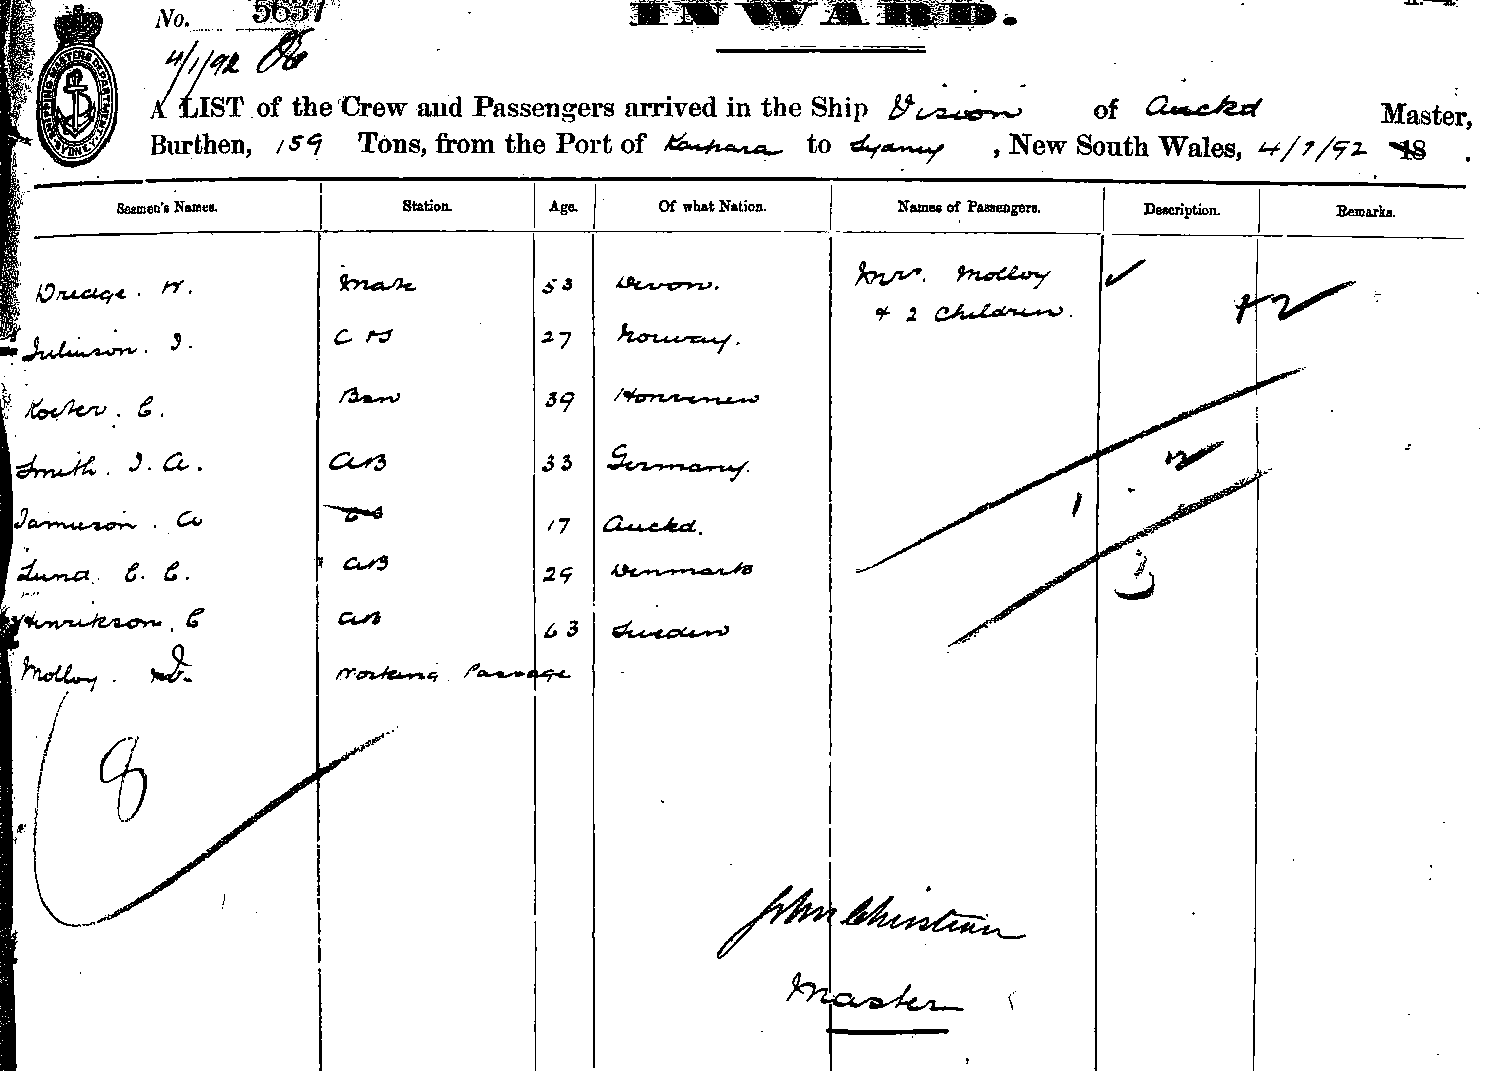 No. 5637
INWARD.
4/1/92
A LIST of the Crew and Passengers arrived in the Ship Vision of Auckd Master,
Burthen, 159 Tons, from the Port of Kaipara to Sydney, New South Wales, 4/1/92 18 .
Seamen's Names. Station. Age. Of what Nation. Names of Passengers. Description. Remarks.
Dredge. W. Mate 53 Devon. Mrs. Molloy
& 2 Children. +2
Julinson. J. C S 27 Norway.
Koster. C. 39
Smith. J. A. AB 33 Germany.
1 . 2
Jamieson. A 17 Auckd.
Lund. C. C. AB 29 Denmark
3
Henrikson. C AB 63 Sweden
Molloy. Working Passage
8
John Christian
Master